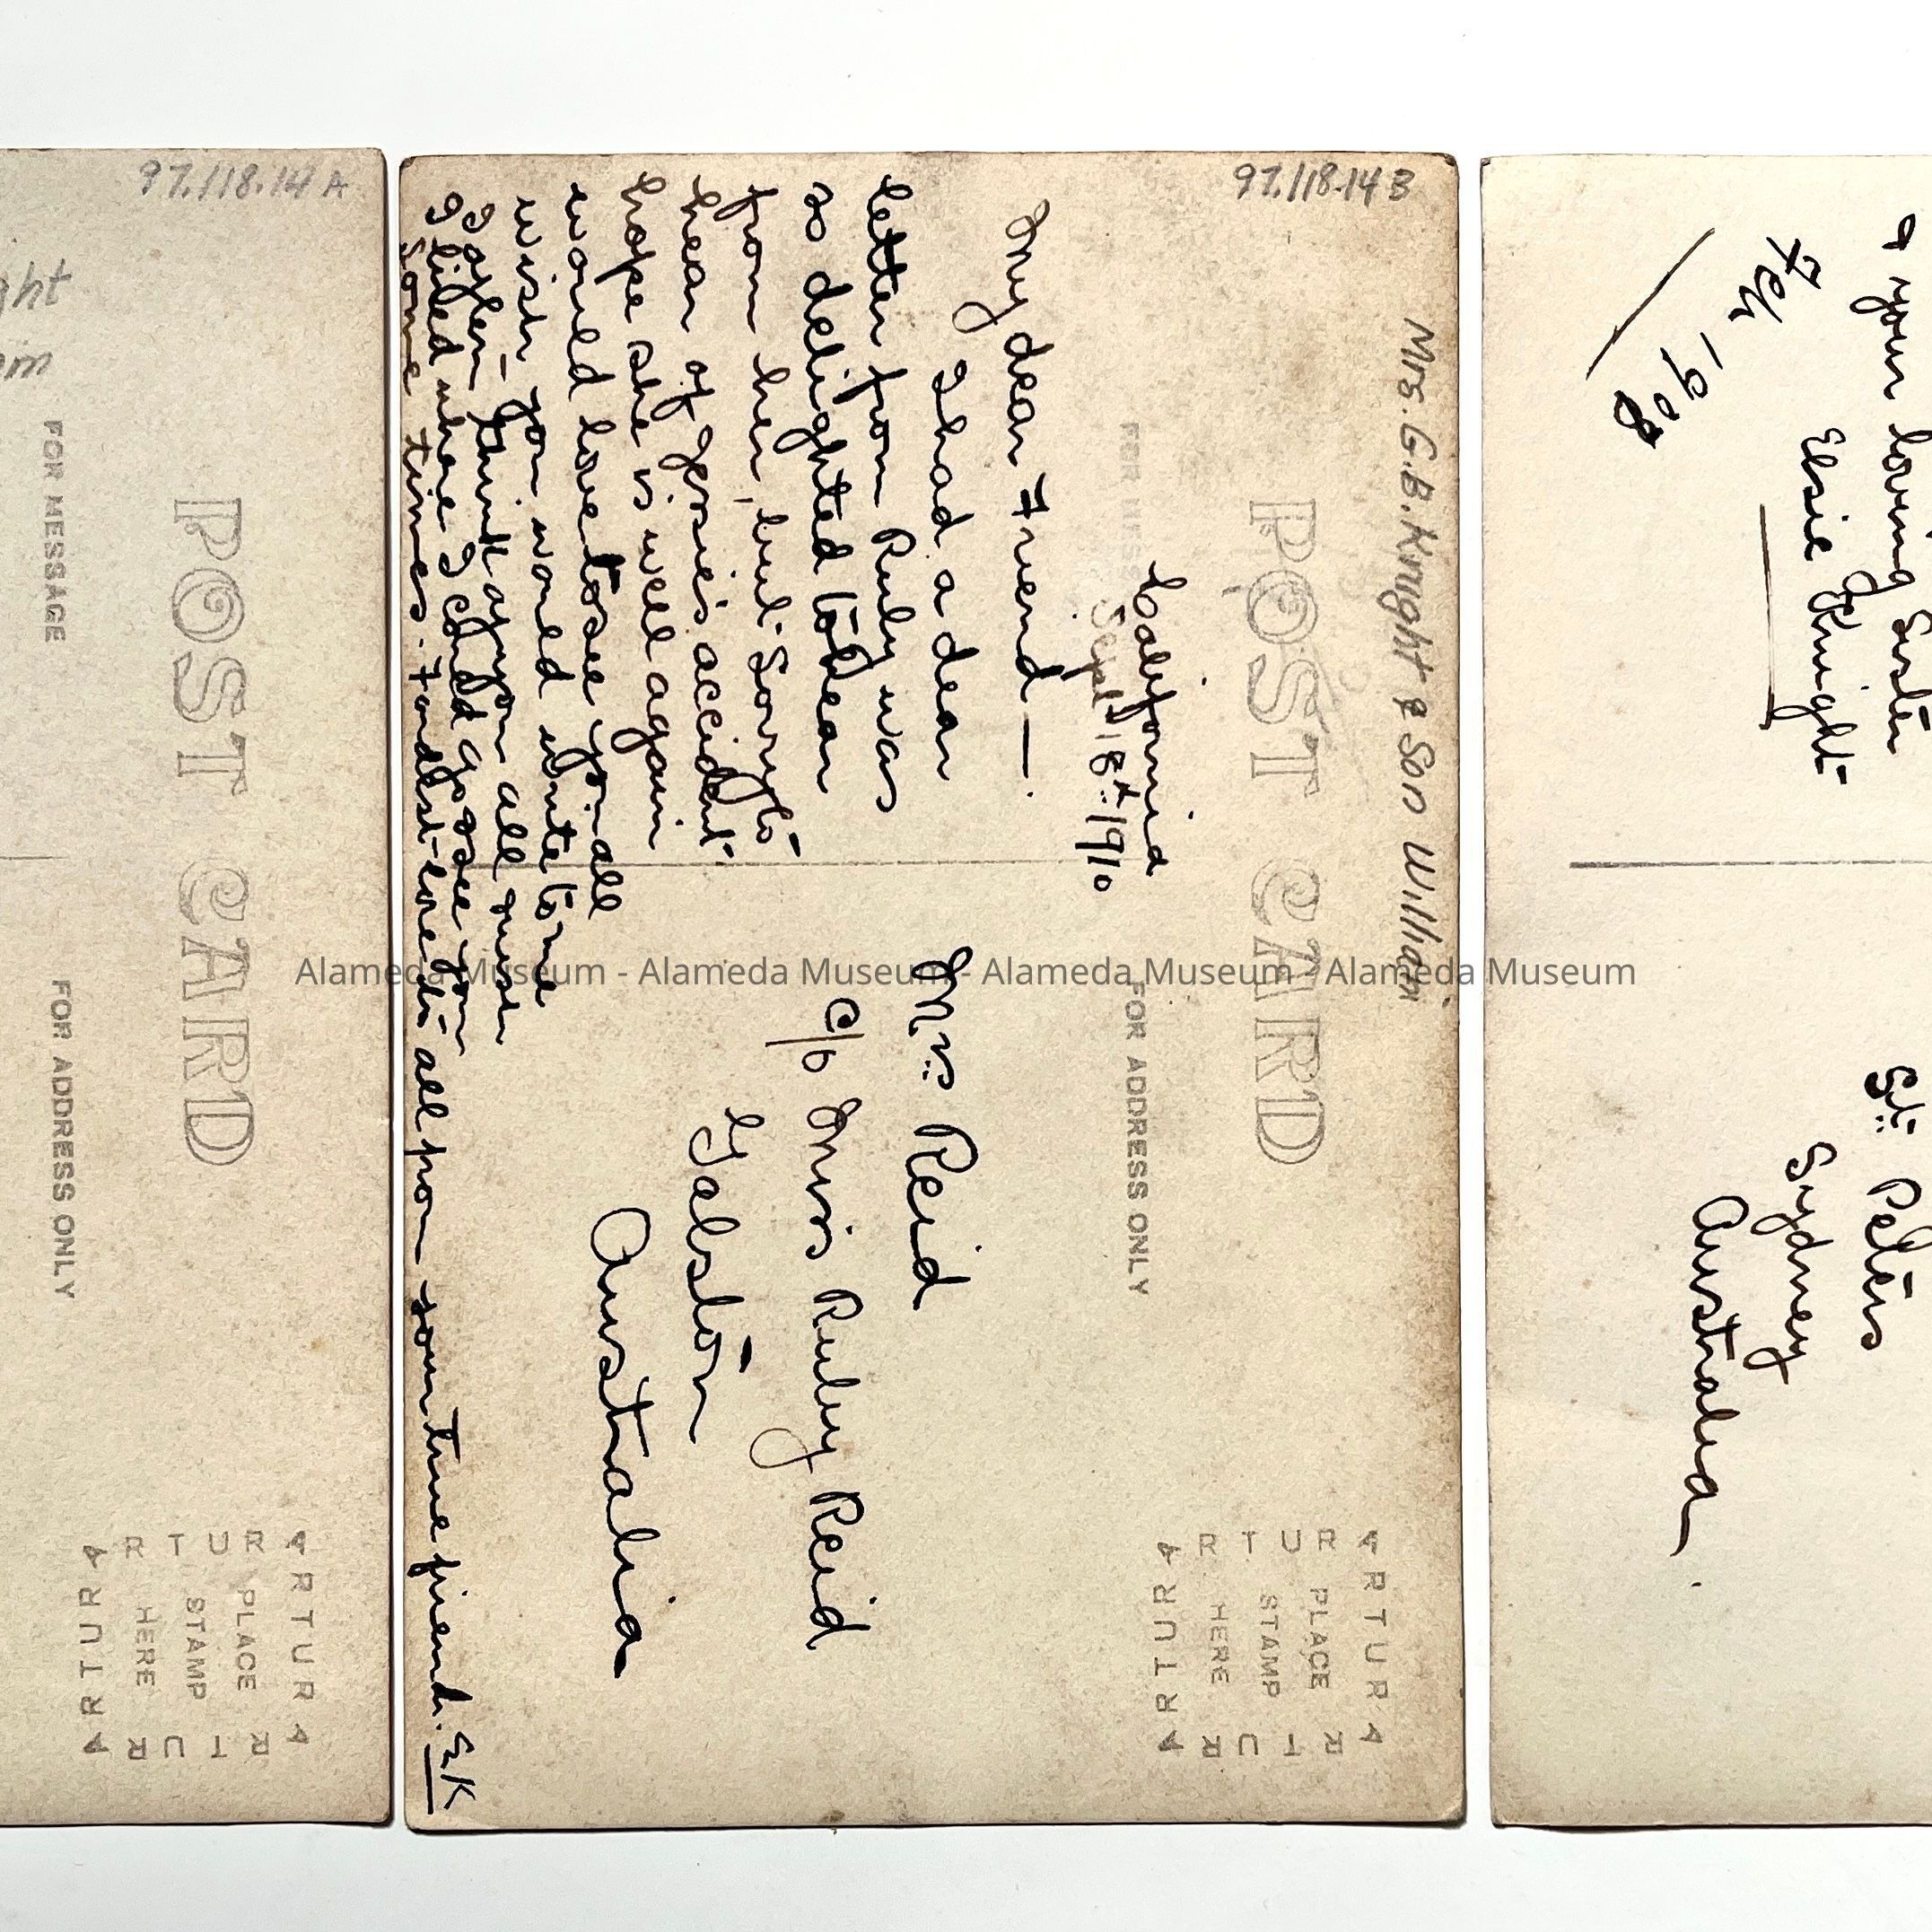 97.118.14 A
ght
POST CARD
FOR MESSAGE
FOR ADDRESS ONLY
ARTURA
PLACE
STAMP
HERE
ARTURA
97.118.14 B
Mrs. G.B. Knight & Son William
POST CARD
FOR MESS
FOR ADDRESS ONLY
California
Sept 18th 1910
My dear Friend —
I had a dear
letter from Ruby was
so delighted to hear
from her, but sorry to
hear of Jessie's accident
hope she is well again
would love to see you all
wish you would write to me
I often think of you all &
I liked where I could go & see you
some times. Fondest love to all from your true friend. EK
Mrs Reid
c/o Miss Ruby Reid
Galston
Australia
ARTURA
PLACE
STAMP
HERE
ARTURA
& your loving Sister
Elsie Knight
Feb 1908
St. Peters
Sydney
Australia.
Alameda Museum - Alameda Museum - Alameda Museum - Alameda Museum